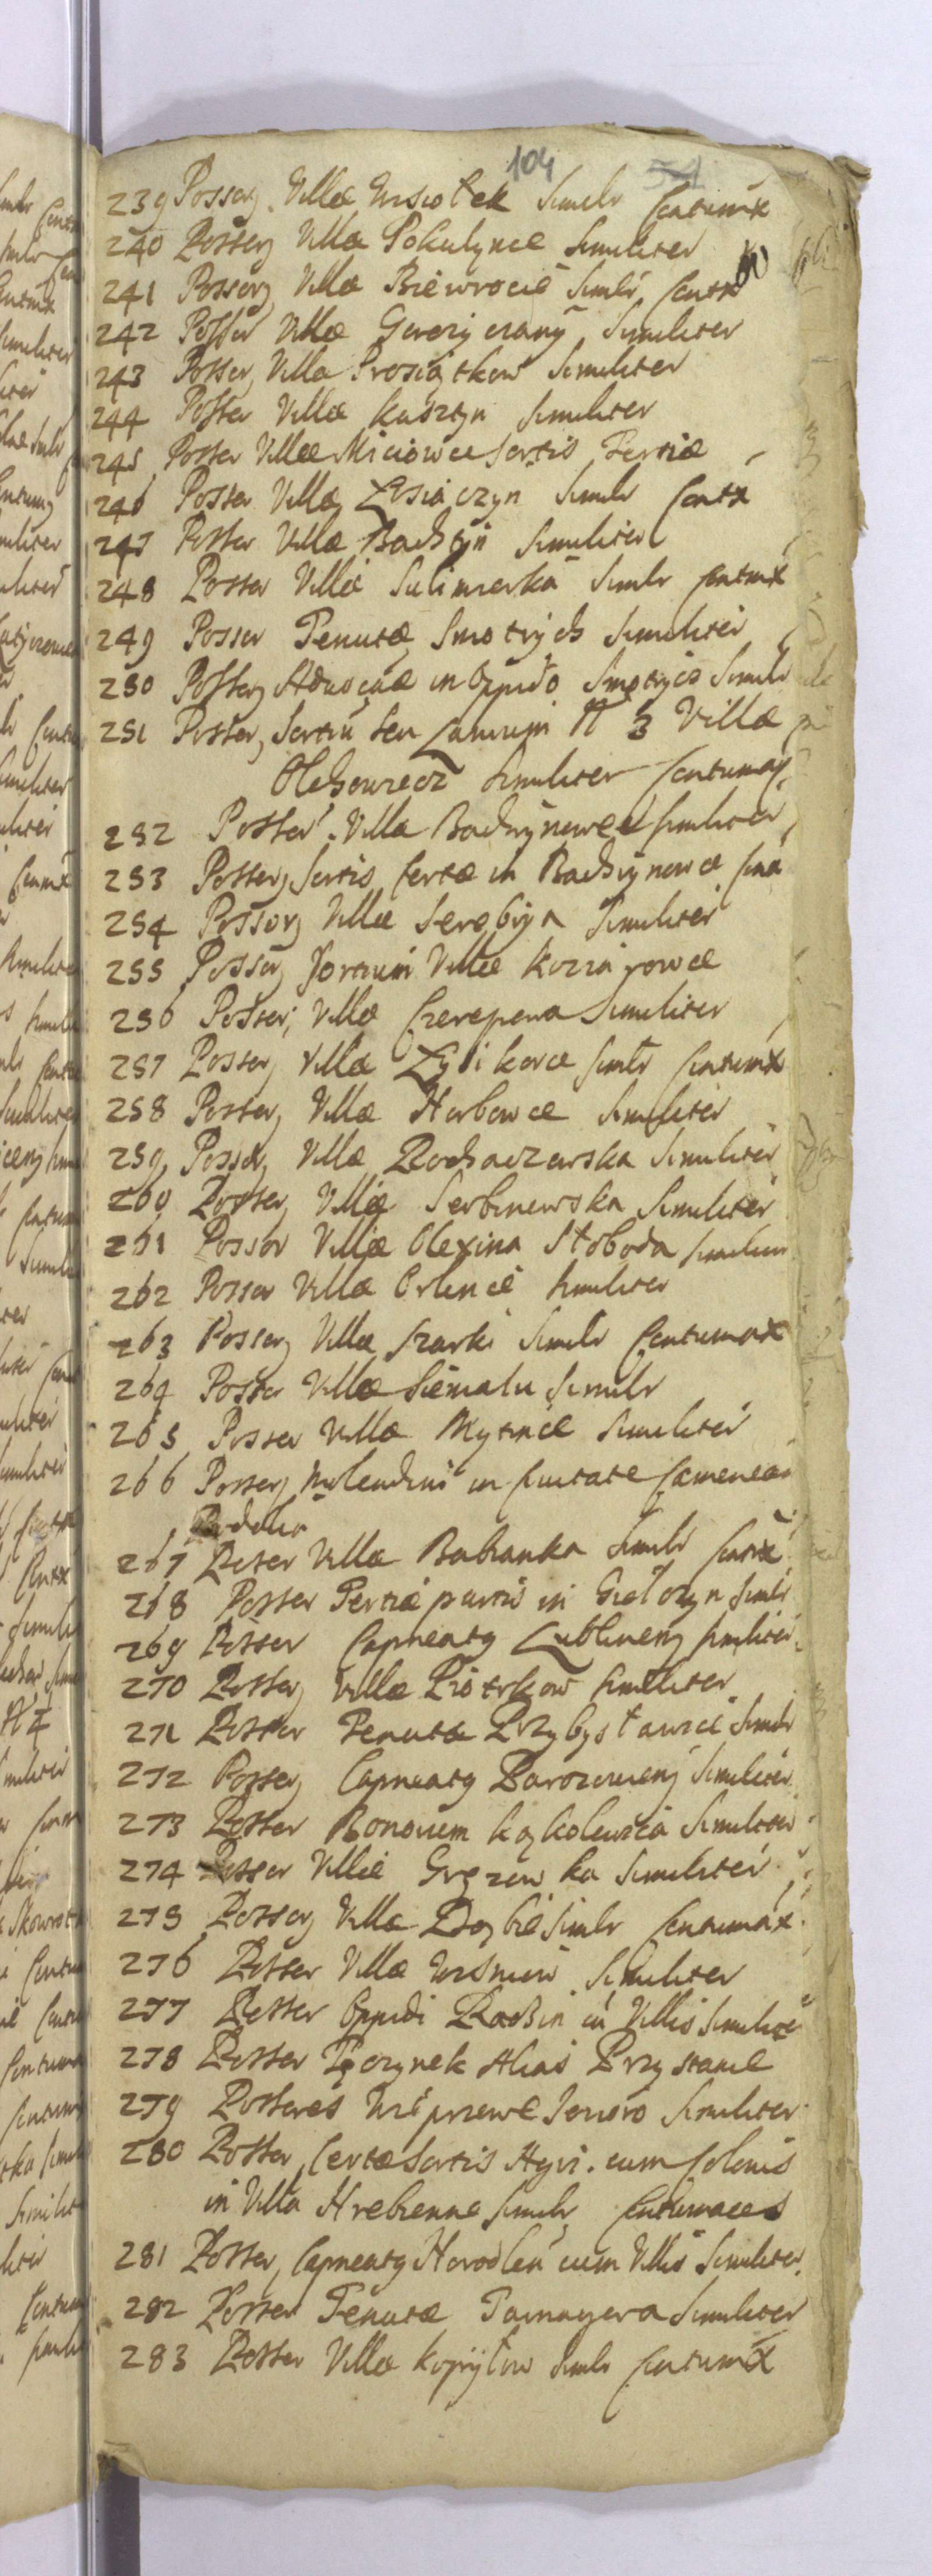 104 51
239 Possor Villæ Wisiołek Similr Contumx
240 Possor Villæ Pokulynce Similiter
241 Possor Villæ Biewrocie Similr Contx
242 Possor Villæ Gorczyczany Similiter
243 Possor Villæ Prosiątkow Similiter
244 Possor Villæ Kusztyn Similiter
245 Possor Villæ Miciowce Sortis Tertiæ
246 Possor Villæ Łysiaczyn Similr Contx
247 Possor Villæ Bachtyn Similiter
248 Possor Villæ Sulimerka Similr Contmx
249 Possor Tenutæ Smotrych Similiter
250 Possor Advocatiæ in Oppido Smotrycs Similr
251 Possor, Sortiu seu Lanorum N 3 Villæ
Olchowiecz Similiter Contumax
252 Possor Villæ Bachrynowce Similiter
253 Possor Sortis certæ in Bachrynowce
254 Possor Villæ Serebryn Similiter
255 Possor Sortium Villæ Koziarowce
256 Possor Villæ Czerepowa Similiter
257 Possor Villæ Zysikowce Similr Contumx
258 Possor Villæ Horbowce Similiter
259 Possor Villæ Rochaczewska Similiter
260 Possor Villæ Serbinowska Similiter
261 Possor Villæ Olexina Słoboda Similiter
262 Possor Villæ Orlence Similiter
263 Possor Villæ Szarki Similr Contumax
264 Possor Villæ Siematu Similr
265 Possor Villæ Mytnice Similiter
266 Possor Molendini in Civitate Camenecæ
Podoliæ
267 Possor Villæ Babianka Similr Contx
268 Possor Tertiæ partis in Giełczyn Similr
269 Possor Capneatq Lublinensj Similiter
270 Possor Villæ Piotrkow Similiter
271 Possor Tenutæ Przybysławice Similr
272 Possor Capneatg Parczoviensj Similiter
273 Possor Bonorum Kąkolewica Similiter
274 Possor Villæ Gręzowka Similiter
275 Possor Villæ Dębie Similr Contumax
276 Possor Villæ Wisniew Similiter
277 Possor Oppidi Radzin cu Villis Similiter
278 Possor Poczynek Alias Przystanie
279 Possores Wieprzowe Jezioro Similiter
280 Possor, Certæ Sortis Agri. cum Colonis
in Villa Hrebenne Similr Contumaces
281 Possor, Capneatg Horodlen cum Villis Similiter
282 Possor Tenutæ Turnagora Similiter
283 Possor Villæ Kopyłow Similr Contumx